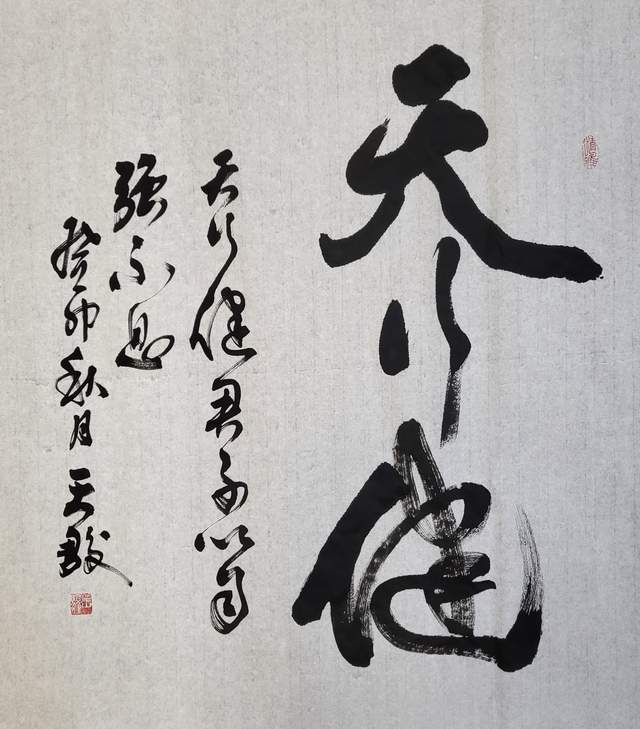 天行健
天行健君子以自
强不息
癸卯秋月天骏